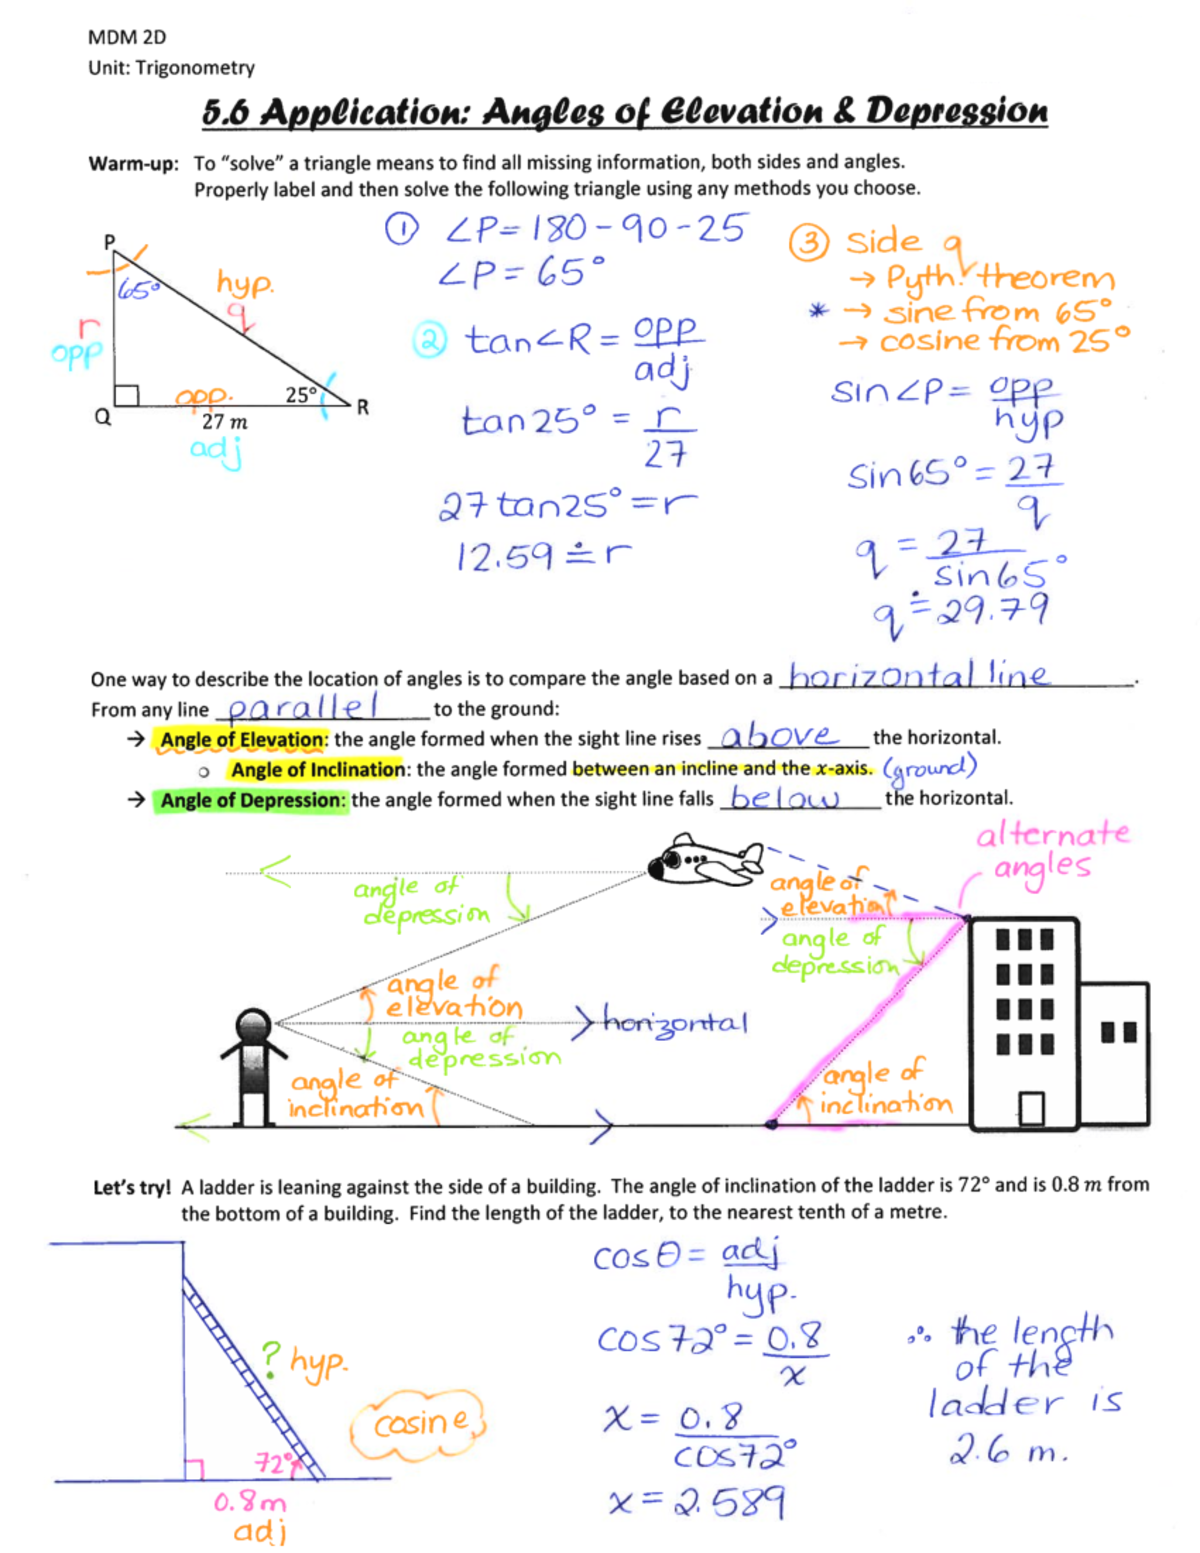 MDM 2D
Unit: Trigonometry
5.6 Application: Angles of Elevation & Depression
Warm-up: To “solve” a triangle means to find all missing information, both sides and angles.
Properly label and then solve the following triangle using any methods you choose.
P
65°
hyp.
q
r
opp
opp.
25°
Q
R
27 m
adj
① ∠P = 180 - 90 - 25
∠P = 65°
② tan∠R = opp
adj
tan25° = r
27
27tan25° = r
12.59 ≐ r
③ side q
→ Pyth. theorem
* → sine from 65°
→ cosine from 25°
sin∠P = opp
hyp
sin65° = 27
q
q = 27
sin65°
q ≐ 29.79
One way to describe the location of angles is to compare the angle based on a horizontal line.
From any line parallel to the ground:
→ Angle of Elevation: the angle formed when the sight line rises above the horizontal.
○ Angle of Inclination: the angle formed between an incline and the x-axis. (ground)
→ Angle of Depression: the angle formed when the sight line falls below the horizontal.
alternate
angles
angle of
depression
angle of
elevation
angle of
depression
angle of
elevation
horizontal
angle of
depression
angle of
inclination
angle of
inclination
Let’s try! A ladder is leaning against the side of a building. The angle of inclination of the ladder is 72° and is 0.8 m from
the bottom of a building. Find the length of the ladder, to the nearest tenth of a metre.
? hyp.
cosine
72°
0.8m
adj
cosθ = adj
hyp.
cos72° = 0.8
x
x = 0.8
cos72°
x = 2.589
∴ the length
of the
ladder is
2.6 m.